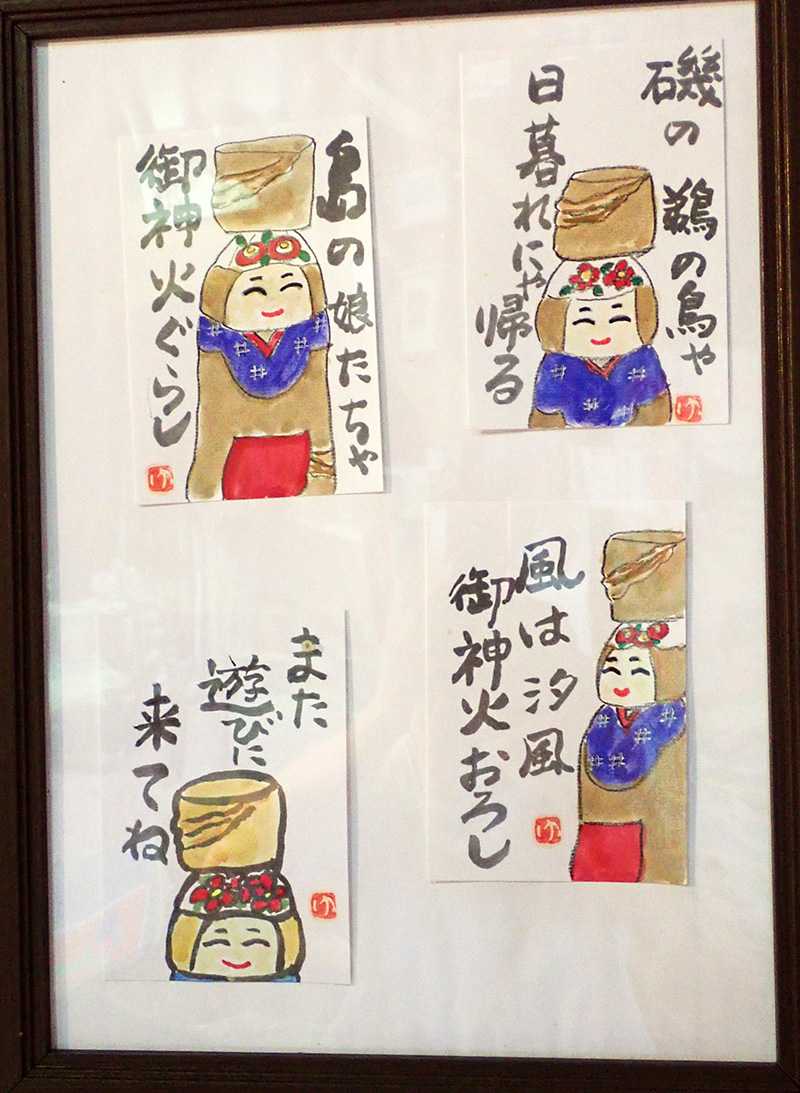 磯の鵜の鳥ゃ
日暮れにゃ
帰る
島の娘たちゃ
御神火ぐらし
風は汐風
御神火おろし
また
遊びに
来てね